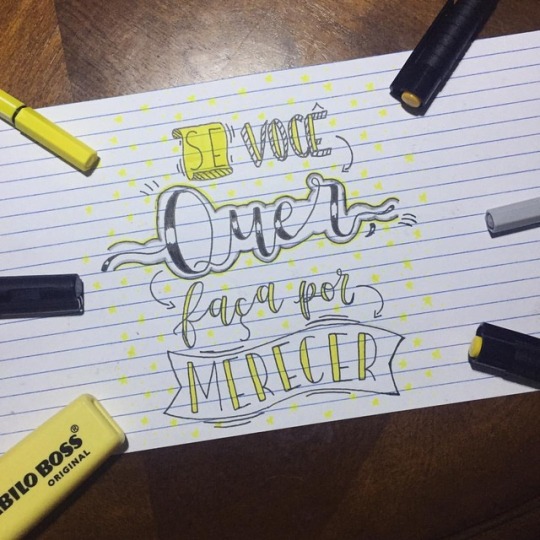 SE VOCÊ
Quer,
faça por
MERECER
BILO BOSS®
ORIGINAL